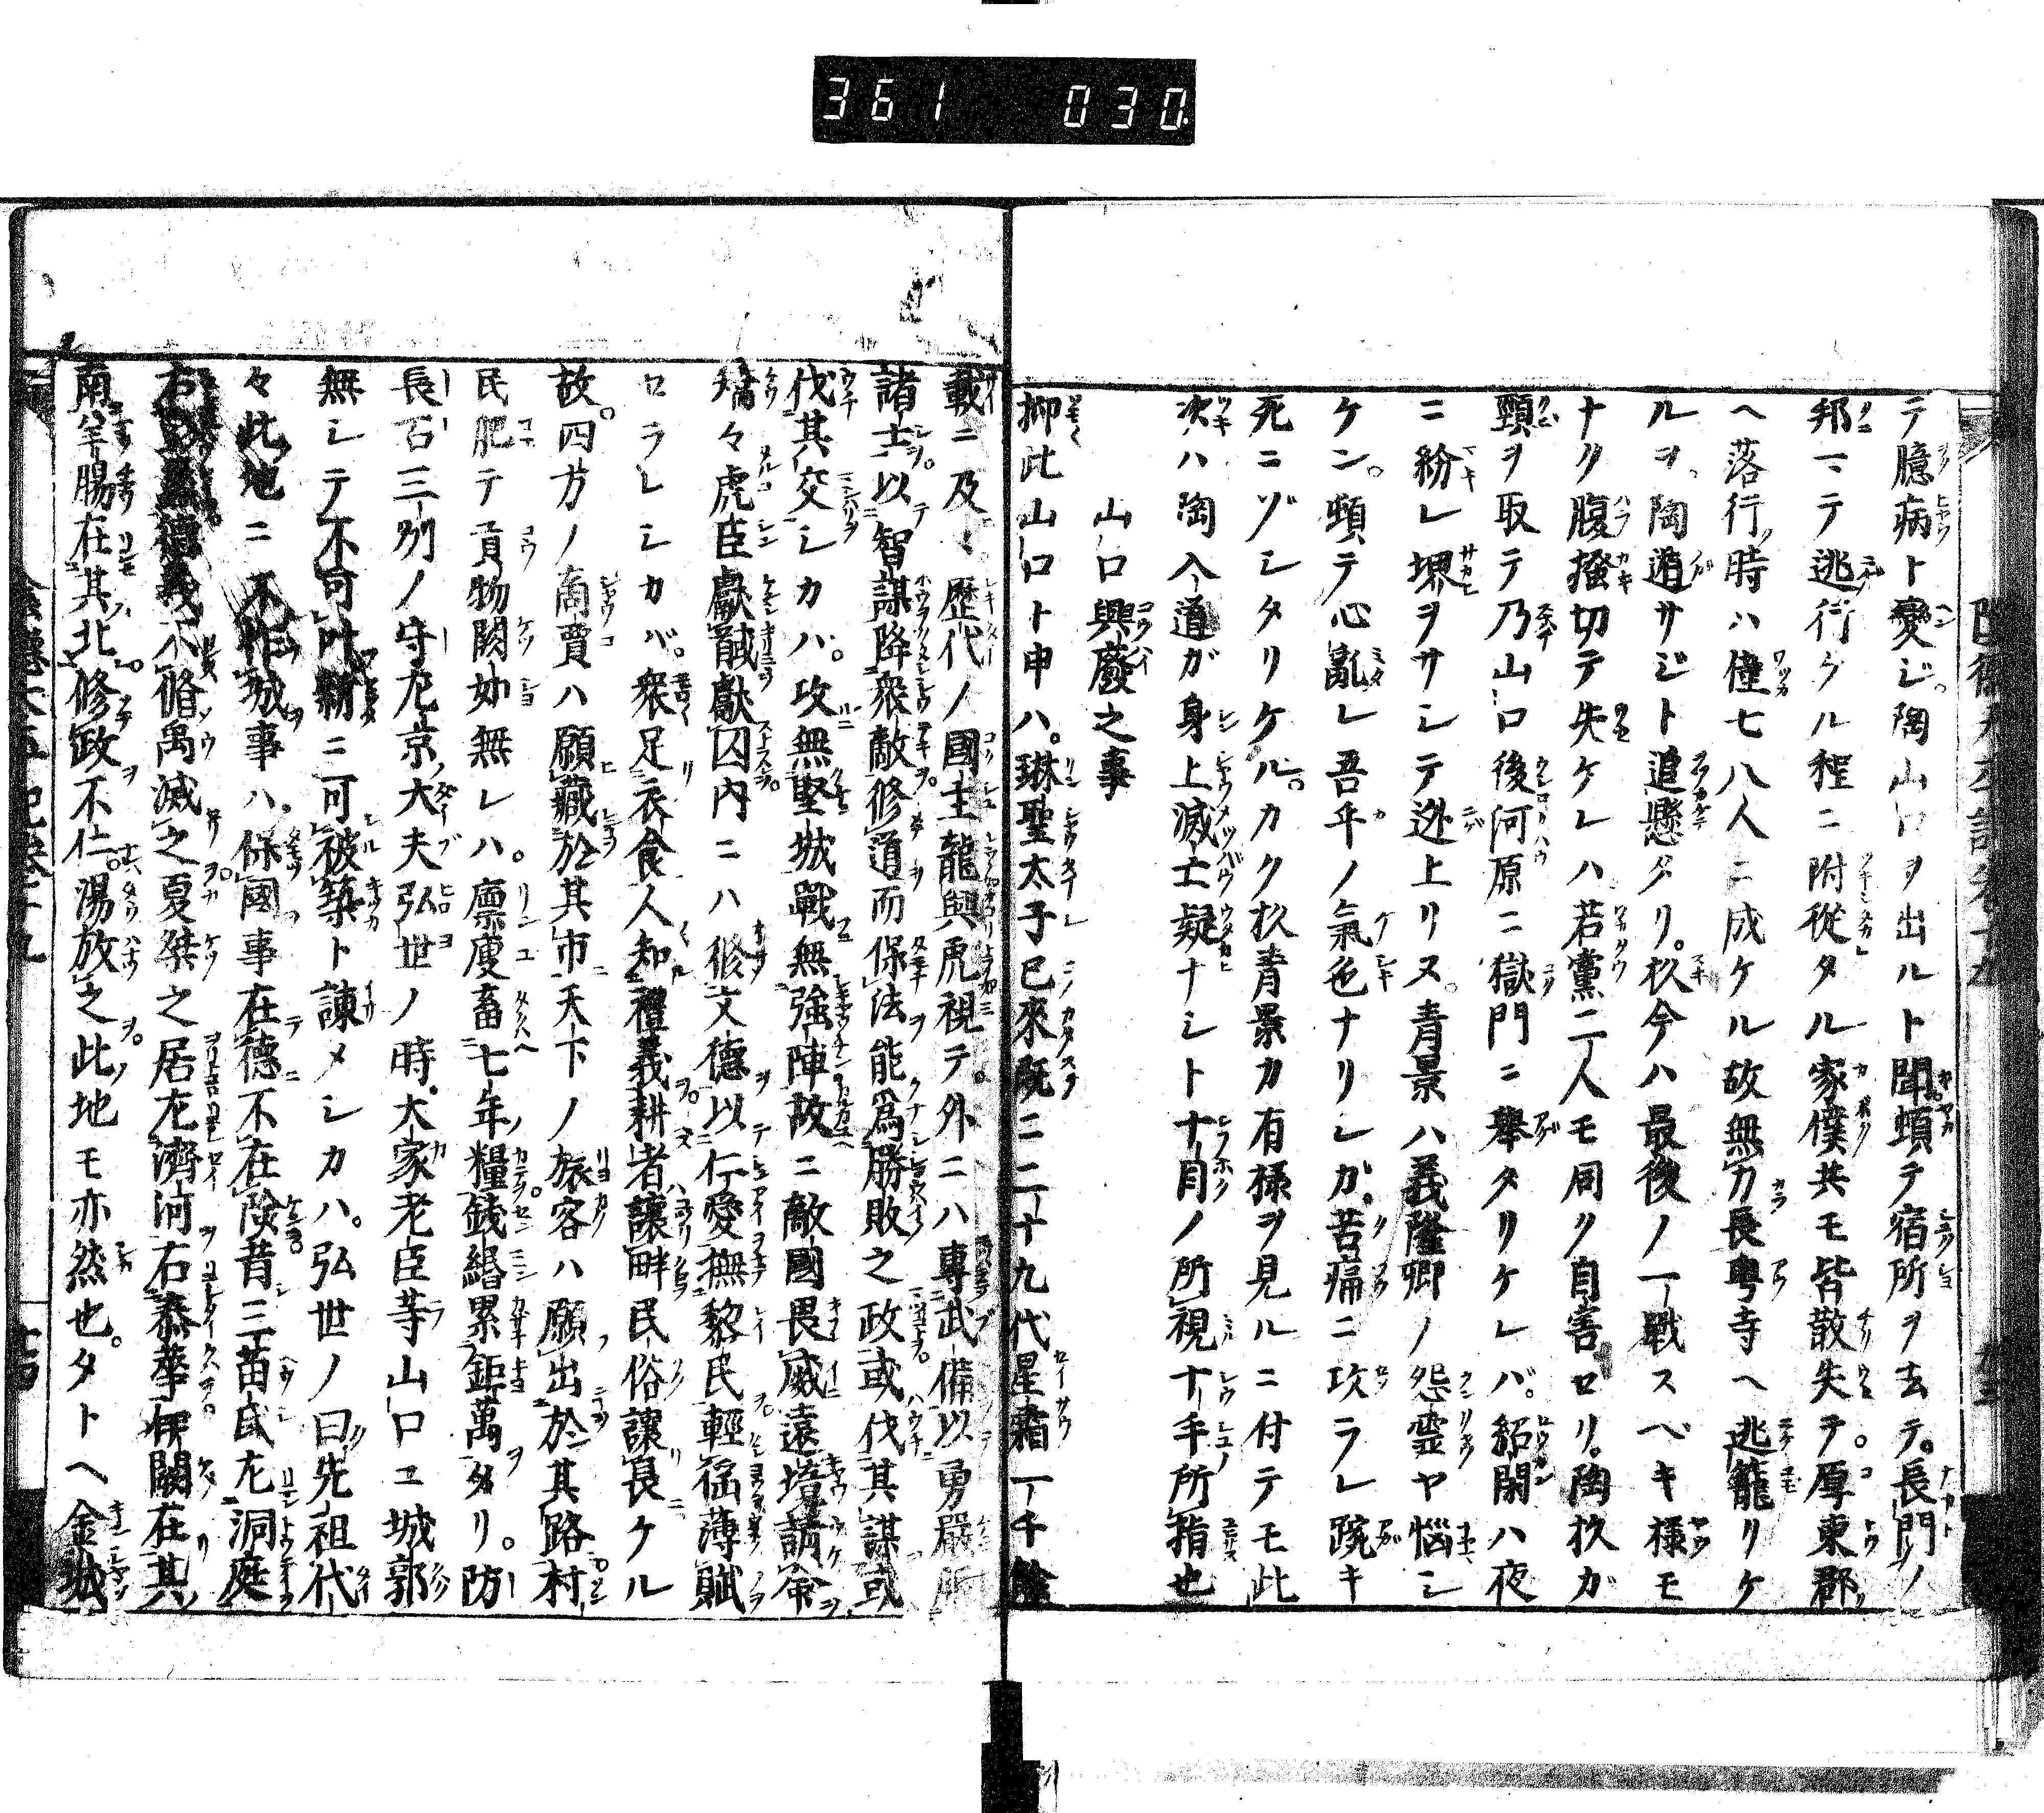 361 030
テ臆病ト變ジ陶山口ヲ出ルト聞頓テ宿所ヲ去テ。長門ノ
邦マテ逃行ケル程ニ附從タル家僕共モ皆散失ヲ。厚東郡
ヘ落行時ハ僅七八人ニ成ケル故無力長粤寺ヘ逃籠リケ
ルヲ陶遁サジト追懸タリ。杦今ハ最後ノ一戰スベキ樣モ
ナク腹掻切テ失ケレハ若黨二人モ同ク自害ロリ。陶杦ガ
頸ヲ取テ乃山口後河原ニ獄門ニ舉タリケレバ。貂閑ハ夜
ニ紛レ堺ヲサシテ迯上リヌ。青景ハ義隆卿ノ怨靈ヤ惱シ
ケン。頓テ心亂レ吾乎ノ氣色ナリシガ。苦痛ニ攻ラレ踠キ
死ニゾシタリケル。カク杦青景カ有樣ヲ見ルニ付テモ此
次ハ陶入道ガ身上滅亡疑ナシト十目ノ所視十手所指也
山口興廢之事
抑此山口ト申ハ。琳聖太子已來既ニ二十九代星霜一千餘
載ニ及ヒ歴代ノ國主龍興虎視テ。外ニハ專武備以勇嚴
諸士以智謀降衆敵修道而保法能爲勝敗之政或伐其謀或
伐其交シカハ。攻無堅城戰無強陣故ニ敵國畏威遠境請命
矯々虎臣獻馘獻囚内ニハ修文德以仁愛撫黎民輕徭薄賦
ロラレシカバ。衆足衣食人知禮義耕者讓畔民俗讓長ケル
故。四方ノ商賈ハ願藏於其市天下ノ旅客ハ願出於其路村
民肥テ貢物闕如無レハ。廩廋畜七年糧錢緡累鉅萬タリ。防
長石三列ノ守左京大夫弘世ノ時大家老臣等山口ユ城郭
無シテ不可叶紛ニ可被築ト諫メシカハ。弘世ノ曰先祖代
々此地ニ不作城事ハ。保國事在德不在險昔三苗氏左洞庭
德義不脩禹滅之夏桀之居左濟河右泰華伊闕在其
南羊腸在其北修政不仁。湯放之此地モ亦然也。タトヘ金城